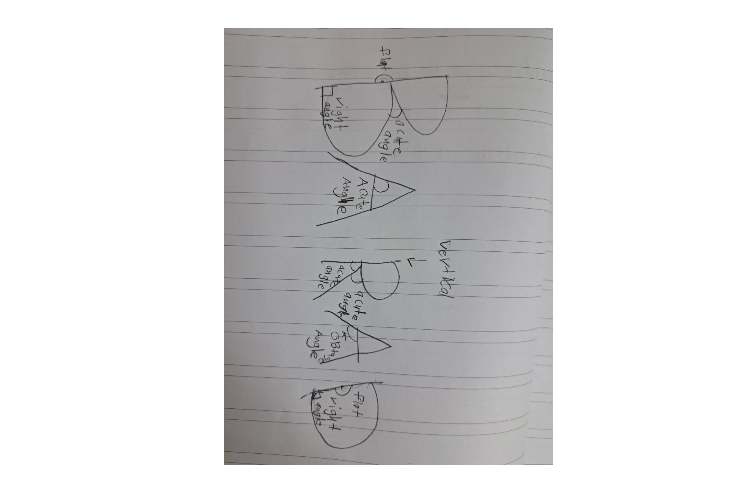 Vertical
B A R A D
Flat
acute
angle
right
angle
Acute
Angle
acute
angle
acute
angle
Angle
Flat
right
angle